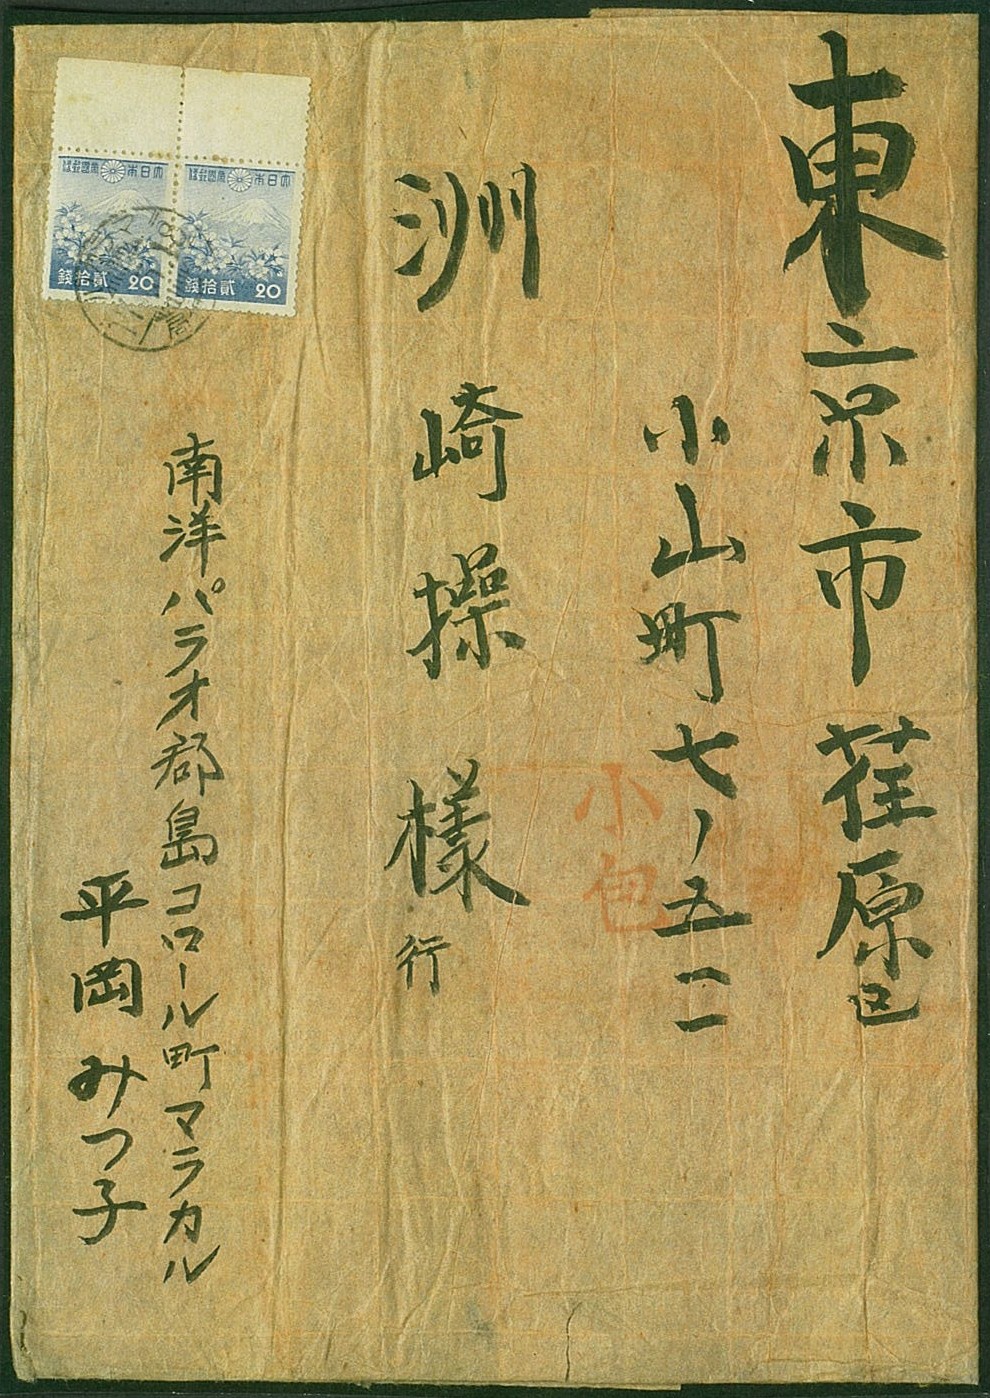 東京市荏原区
小山町七ノ五二
小包
洲崎操様行
南洋パラオ郡島コロール町マラカル
平岡みつ子
大日本帝國郵便
貳拾錢 20
大日本帝國郵便
貳拾錢 20